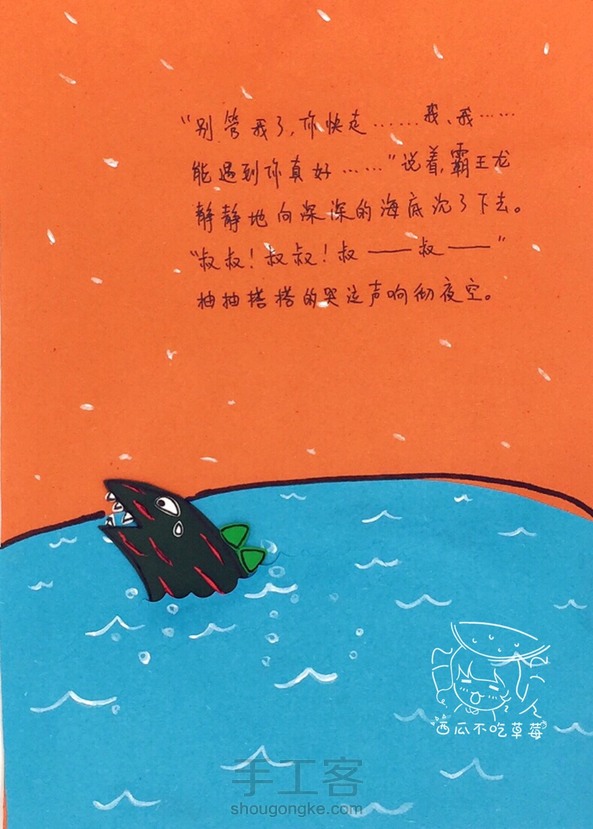 “别管我了，你快走……我、我……
能遇到你真好……”说着，霸王龙
静静地向深深的海底沉了下去。
“叔叔！叔叔！叔——叔——”
抽抽搭搭的哭泣声响彻夜空。
西瓜不吃草莓
手工客
shougongke.com